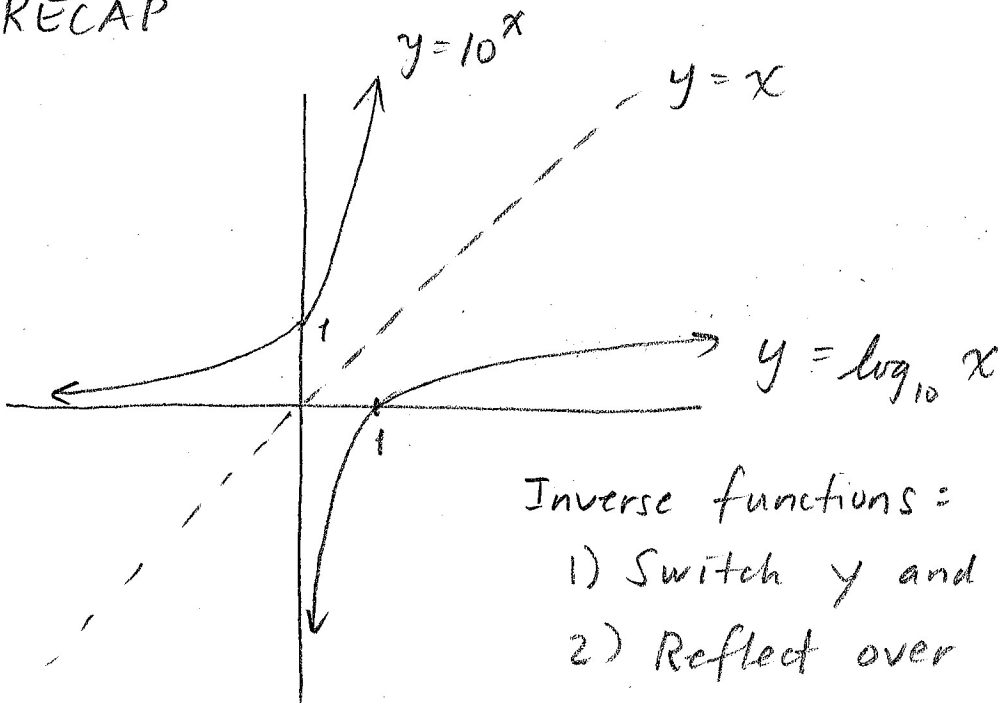 RECAP
y = 10^x
y = x
1
y = log₁₀ x
1
Inverse functions:
1) Switch y and
2) Reflect over